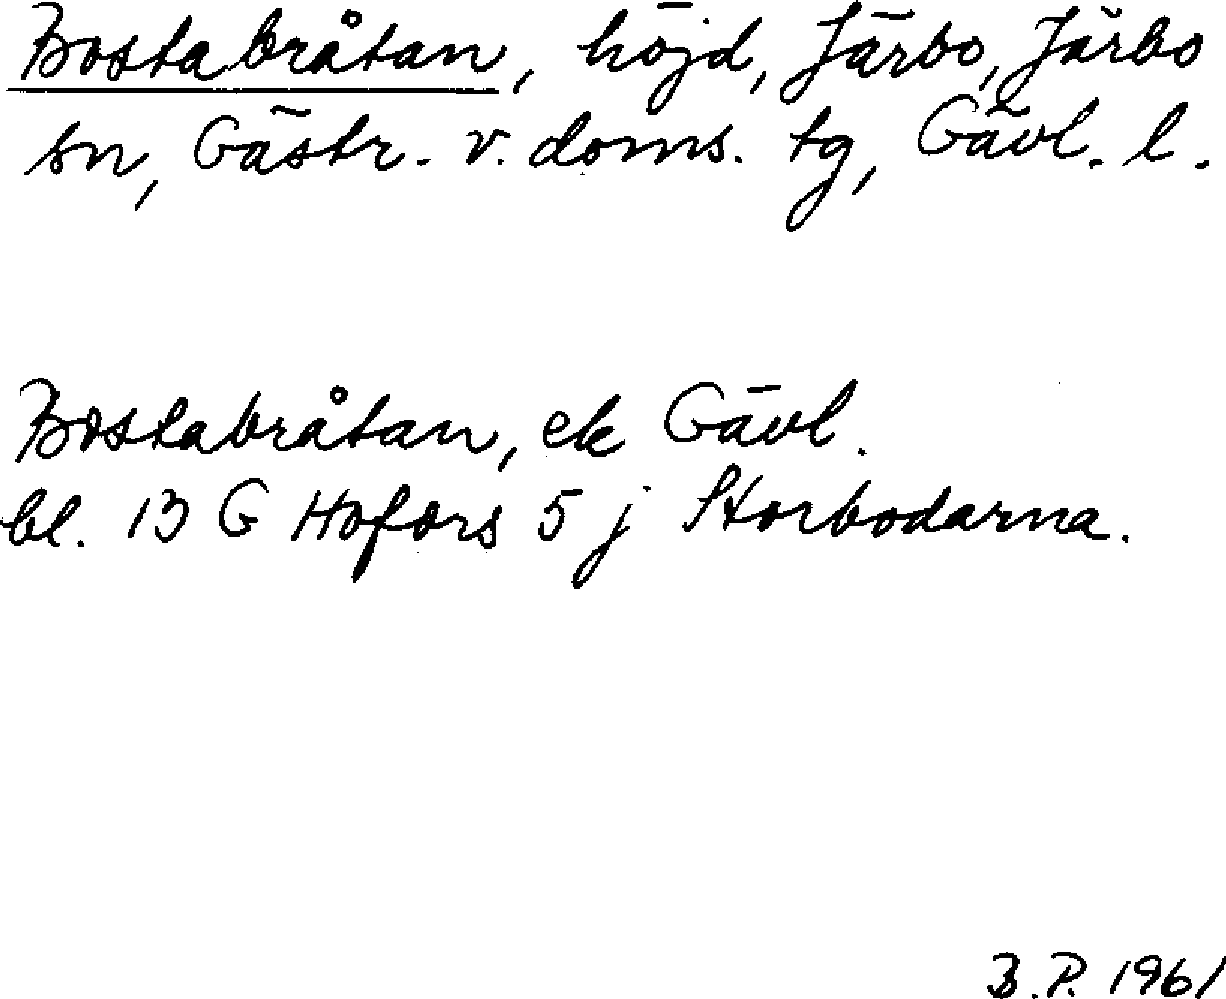 Bostabråtan, höjd, Järbo, Järbo
sn, Gästr. v. doms. tg, Gävl. l.
Bostabråtan, ek Gävl.
bl. 13 G Hofors 5 j Storbodarna.
B.P. 1961